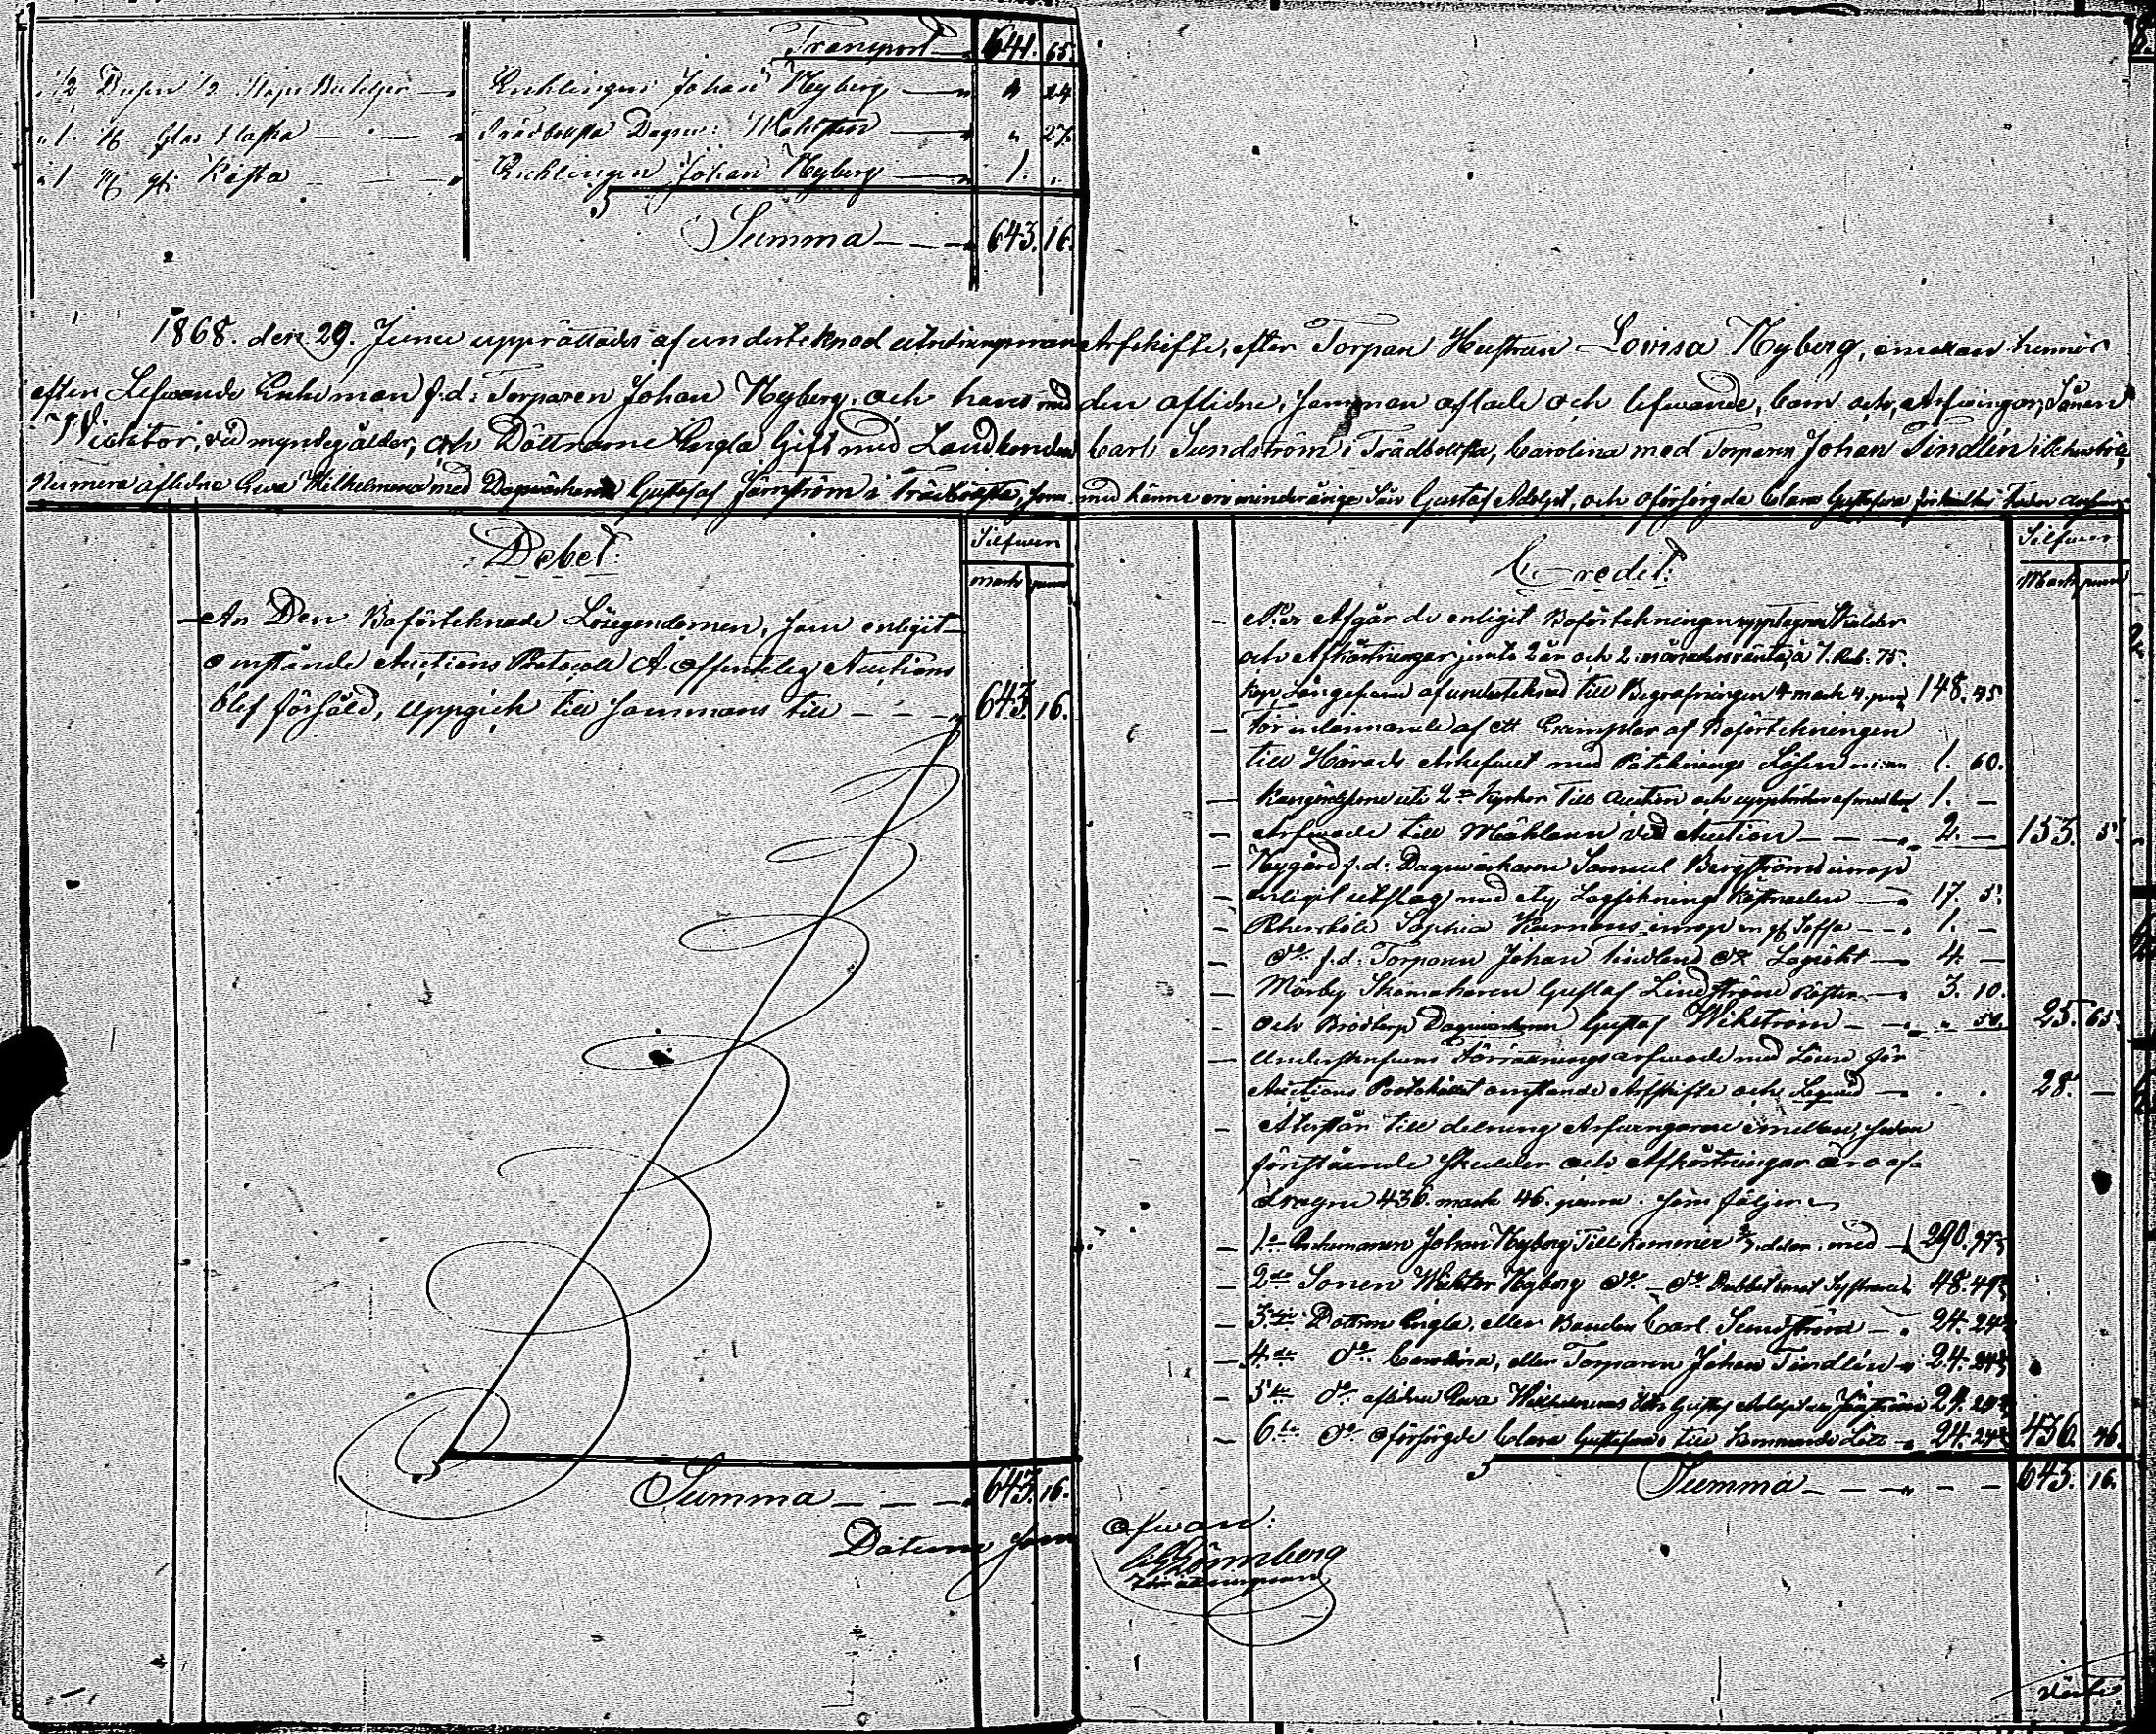 Transport 641. 65.
1/2 Dusin 1/2 Stops Buteljer Enklingen Johan Nyberg " 24
1. Glas Flaska Trädbollsta " 27.
1 Kista Enklingen Johan Nyberg 1. "
Summa 643. 16.
1868. den 29. Junii upprättades af undertecknad utredningsman Arfskifte, efter Torpare Hustrun Lovisa Nyberg, emellan hennes
efter Lefvande Enkeman f.d. Torparen Johan Nyberg, och hans med den aflidne, samman aflade och lefvande, barn och Arfvingar, Sönen
Wicktor, vid myndig ålder, och Döttrarne Engla Gift med Landbonden Carl Sundström i Trädbollsta, Carolina med Torparen Johan Tindlén i
Numera aflidna Eva Wilhelmina med Dagsverkaren Gustaf Järnström i Trädbollsta, som med henne en minderårige Son Gustaf Adolf, och oförsörgda Clara Gustafva
Debet.
Silfwer
mark penni
An Den Boförteknade Lösegendomen, som enligit
omstående Auctions Protocoll Å offentelig Auctions
blef försåld, uppgick till sammans till 643 16.
Summa 643. 16.
Datum som
Credit.
Silfwer
Mark penni
Per Afgår de enligit Boförtekningen upptagne Skulder
och Afkörtningar jemte 2 år och 2 månaders ränta, à 7. Rub. 75.
kop af undertecknad till Begrafningen 4 mark 4. penni 148. 45
För inlemnande af ett Exemplar af Boförtekningen
till Härads Arkefvet med Påteknings Lösen 1. 60.
Kungörelserne uti 2ne Kyrkor Till Auction och 1. —
Arfvode till Mäklaren vid Auction 2. — 153. 5.
Nygård f.d. Dagsverkaren Samuel Bergströms inrop
enligit utslag med Lagsöknings Kostnaden 17. 5.
Sophia inrop en 1. —
do f.d. Torparen Johan Tindlén do 4. —
Mörby Skomakaren Gustaf Lindström 3. 10.
och Brödtorp Dagsverkaren Gustaf Wikström " 50. 25. 65.
Underskrefvens Förrättnings arfvode med Lösen för
Auctions Protokollet omstående Arfskifte och 28. —
Återstår till delning Arfvingarne emellan, sedan
förestående Skulder och Afkörtningar äro af-
dragne 436. mark 46. penni. som följer
1o Enkemannen Johan Nyberg Tillkommer 2/3 delar med 290. 97
2do Sonen Wicktor Nyberg do do Dubbelt mot Systrarne 48. 49
3tie Dottren Engla, eller Bonden Carl Sundström 24. 24
4de do Carolina, eller Torparen Johan Tindlén 24. 24
5te do aflidne Eva Wilhelminas Son Gustaf Adolf Järnström 24. 24
6te do oförsörgde Clara Gustafvas till kommande Lott 24. 24 436. 46
Summa 643. 16.
ofvan.